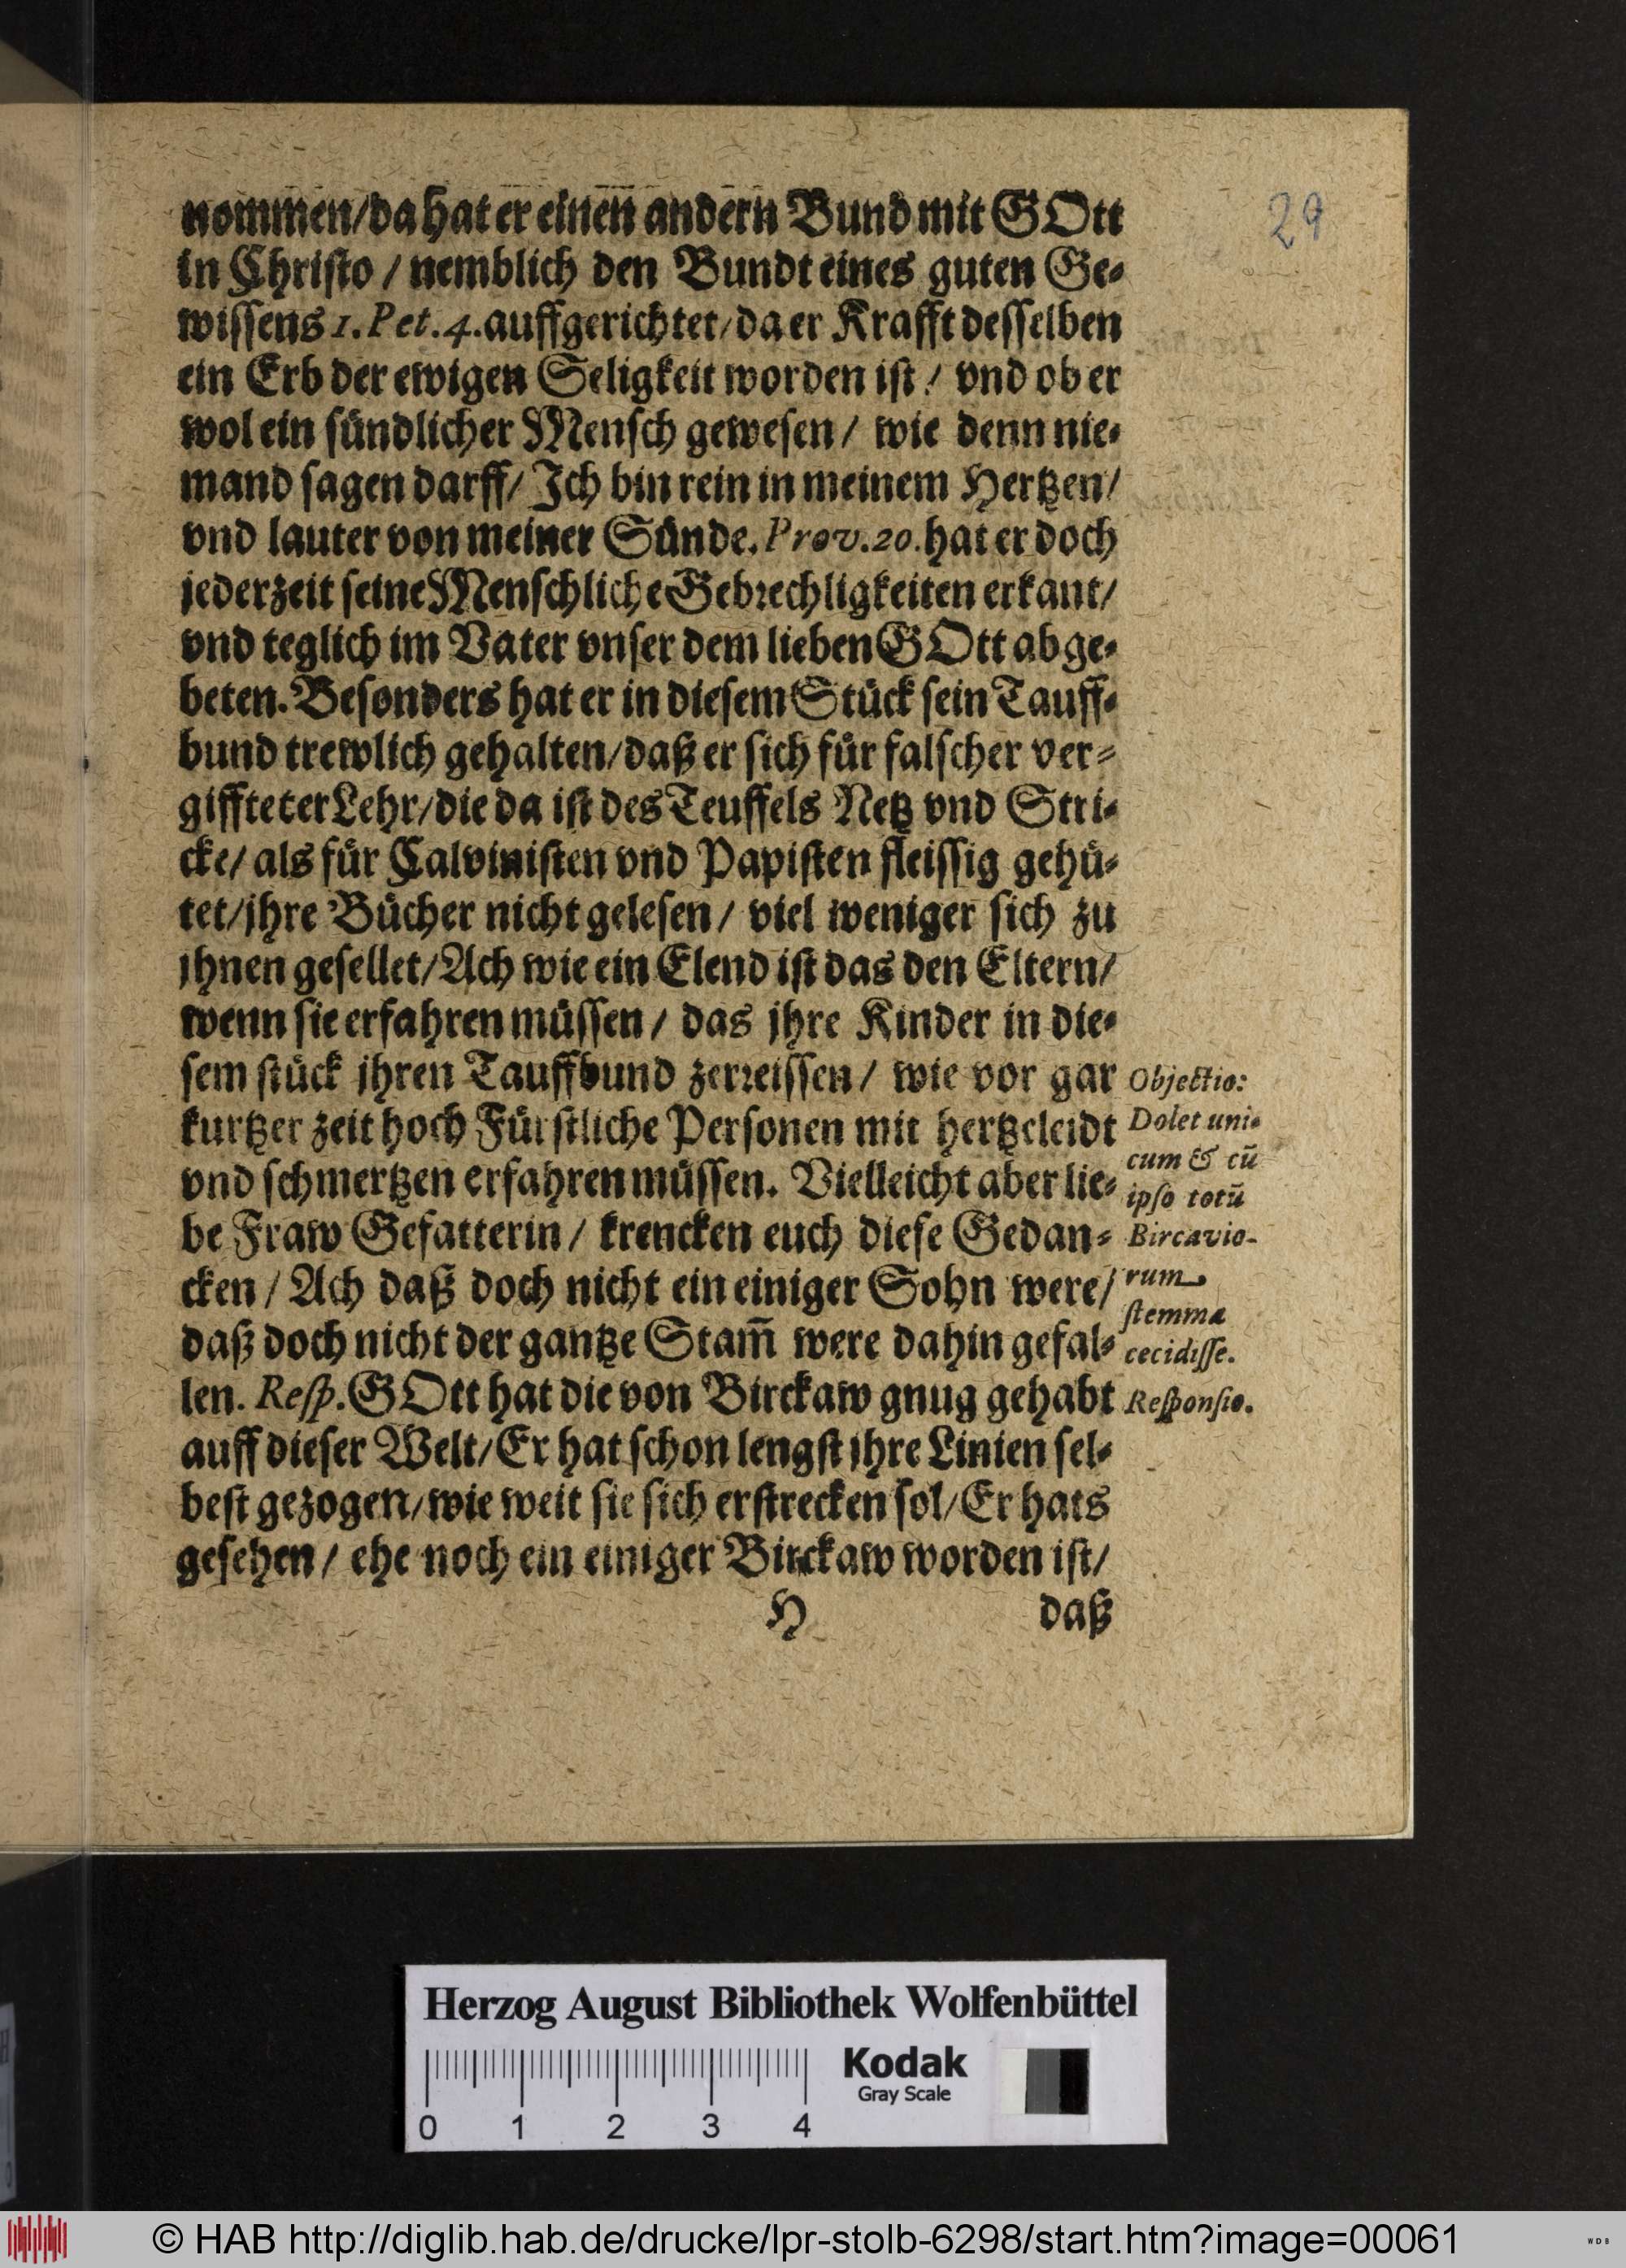 29
nommen/da hat er einen andern Bund mit GOtt
in Christo / nemblich den Bundt eines guten Ge-
wissens 1. Pet. 4. auffgerichtet/da er Krafft desselben
ein Erb der ewigen Seligkeit worden ist / vnd ob er
wol ein sündlicher Mensch gewesen / wie denn nie-
mand sagen darff/ Ich bin rein in meinem Hertzen/
vnd lauter von meiner Sünde. Prov. 20. hat er doch
jederzeit seine Menschliche Gebrechligkeiten erkant/
vnd teglich im Vater vnser dem lieben GOtt abge-
beten. Besonders hat er in diesem Stück sein Tauff-
bund trewlich gehalten/daß er sich für falscher ver-
giffteter Lehr/die da ist des Teuffels Netz vnd Stri-
cke/ als für Calvinisten vnd Papisten fleissig gehü-
tet/jhre Bücher nicht gelesen / viel weniger sich zu
jhnen gesellet/Ach wie ein Elend ist das den Eltern/
wenn sie erfahren müssen / das jhre Kinder in die-
sem stück jhren Tauffbund zerreissen / wie vor gar
kurtzer zeit hoch Fürstliche Personen mit hertzeleidt
vnd schmertzen erfahren müssen. Vielleicht aber lie-
be Fraw Gefatterin / krencken euch diese Gedan-
cken / Ach daß doch nicht ein einiger Sohn were/
daß doch nicht der gantze Stam̃ were dahin gefal-
len. Resp. GOtt hat die von Birckaw gnug gehabt
auff dieser Welt/Er hat schon lengst jhre Linien sel-
best gezogen/wie weit sie sich erstrecken sol/Er hats
gesehen / ehe noch ein einiger Birckaw worden ist/
H daß
Objectio:
Dolet uni-
cum & cũ
ipso totũ
Bircavio-
rum
stemma
cecidisse.
Responsio.
Herzog August Bibliothek Wolfenbüttel
Kodak
Gray Scale
0 1 2 3 4
© HAB http://diglib.hab.de/drucke/lpr-stolb-6298/start.htm?image=00061
WDB